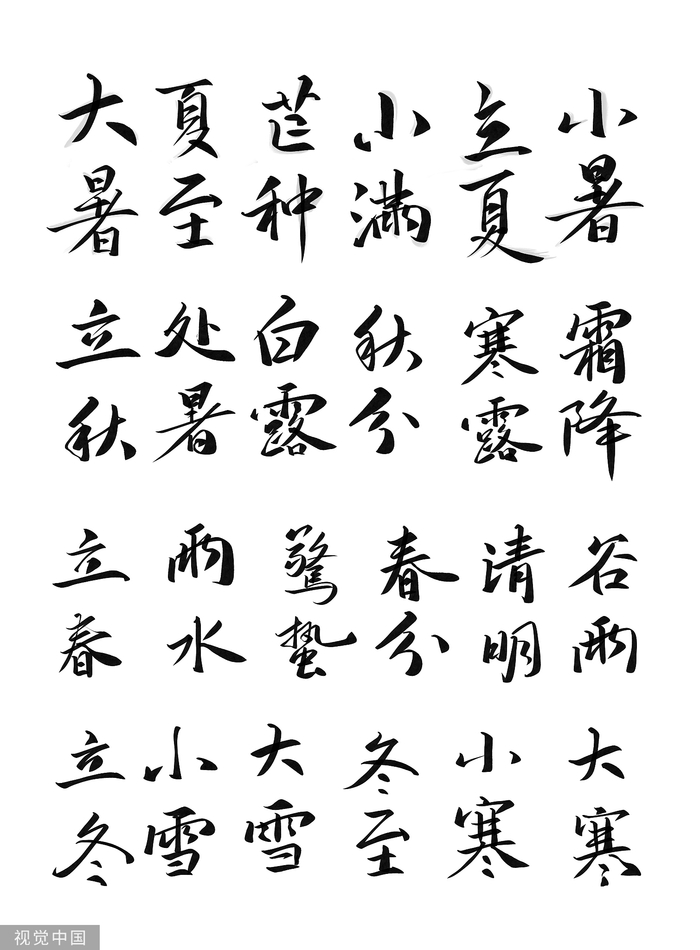 大暑
夏至
芒种
小满
立夏
小暑
立秋
处暑
白露
秋分
寒露
霜降
立春
雨水
驚蛰
春分
请明
谷雨
立冬
小雪
大雪
冬至
小寒
大寒
视觉中国